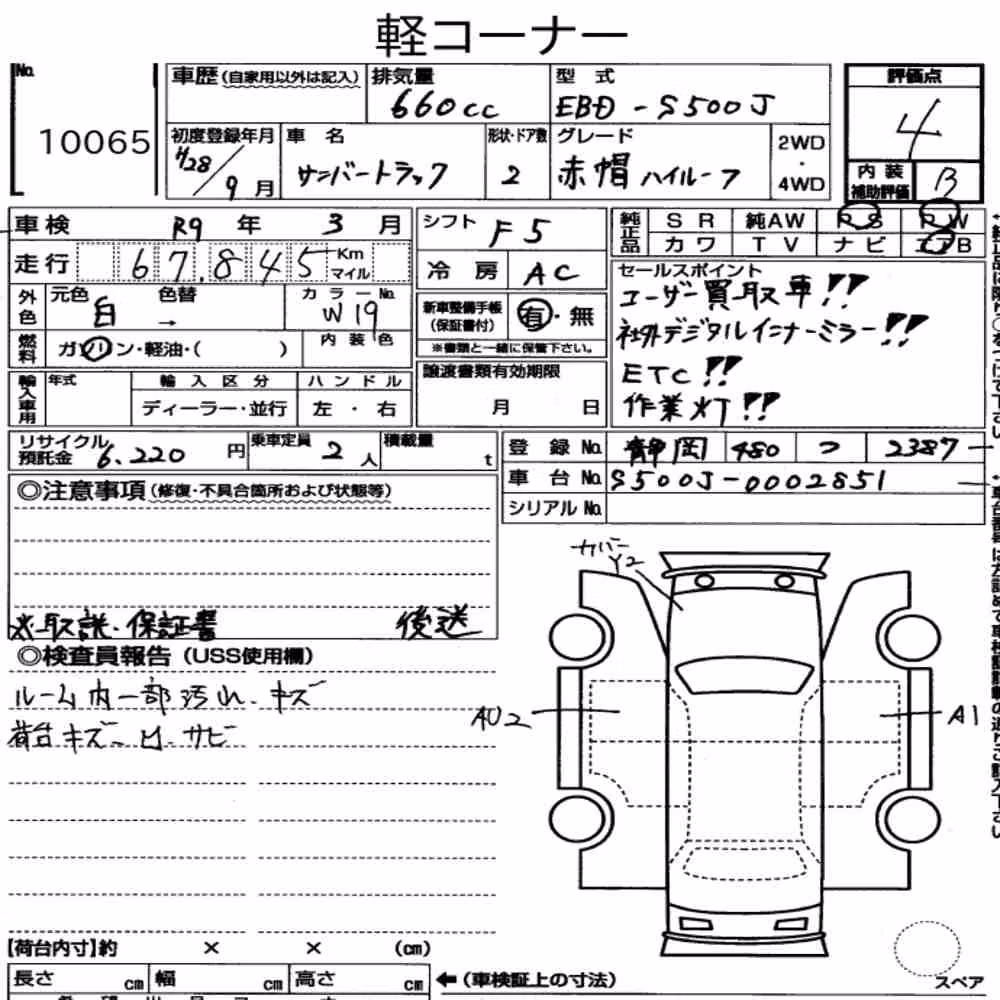 軽コーナー
No. 10065
車歴(自家用以外は記入)
排気量 660cc
型式 EBD-S500J
評価点 4
初度登録年月 H28/9月
車名 サンバートラック
形状・ドア数 2
グレード 赤帽ハイルーフ
2WD・4WD
内装補助評価 B
車検 R9年 3月
走行 67,845 Km マイル
シフト F5
冷房 AC
純正品 SR 純AW PS PW
カワ TV ナビ エアB
外色 元色 白 色替 → カラーNo. W19
燃料 ガソリン・軽油・( ) 内装色
新車整備手帳(保証書付) 有・無
※書類と一緒に保管下さい。
セールスポイント
ユーザー買取車!!
社外デジタルインナーミラー!!
ETC!!
作業灯!!
輸入車用 年式 輸入区分 ハンドル
ディーラー・並行 左・右
譲渡書類有効期限
月 日
リサイクル預託金 6.220円
乗車定員 2人
積載量 t
登録No. 静岡 480 つ 2387
車台No. S500J-0002851
シリアルNo.
◎注意事項(修復・不具合箇所および状態等)
※取説・保証書 後送
◎検査員報告(USS使用欄)
ルーム内一部汚れ.キズ
荷台キズ-凹.サビ
カバーY2
AU2
A1
【荷台内寸】約 × × (cm)
長さ cm 幅 cm 高さ cm
←(車検証上の寸法)
スペア